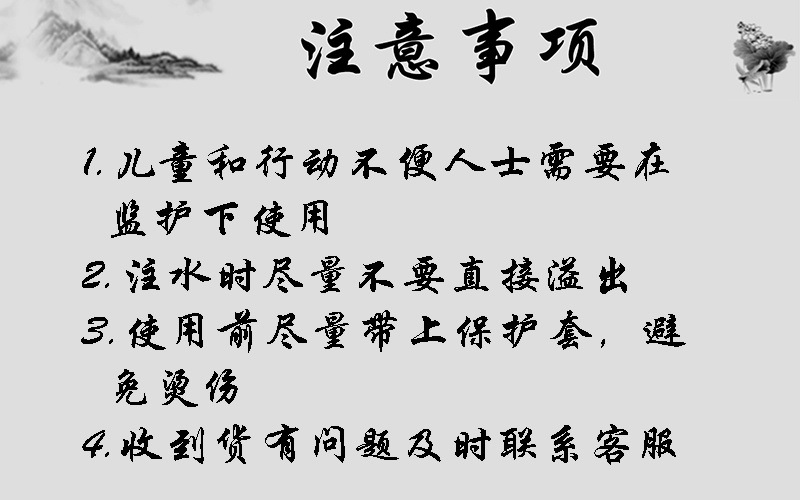 注意事项
1.儿童和行动不便人士需要在
监护下使用
2.注水时尽量不要直接溢出
3.使用前尽量带上保护套，避
免烫伤
4.收到货有问题及时联系客服